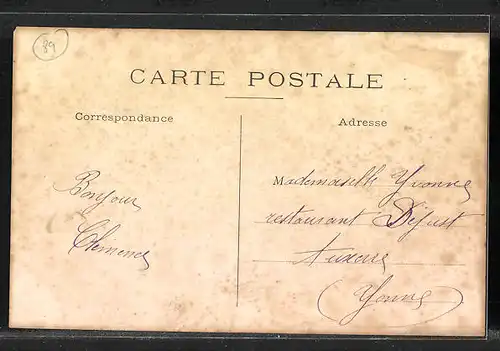 89
CARTE POSTALE
Correspondance
Adresse
Bonjour
Clemence
Mademoiselle Yvonne
restaurant Défust
Auxerre
(Yonne)